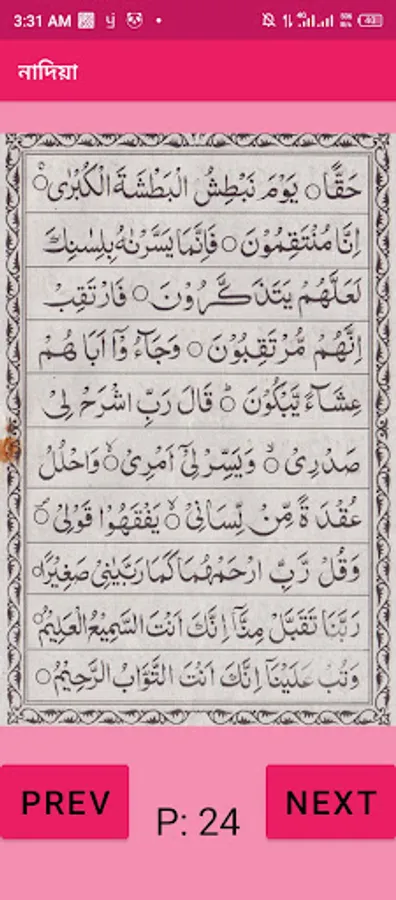 3:31 AM
নাদিয়া
حَقًّا ○ يَوْمَ نَبْطِشُ الْبَطْشَةَ الْكُبْرٰى ○
اِنَّا مُنْتَقِمُوْنَ ○ فَاِنَّمَا يَسَّرْنٰهُ بِلِسٰنِكَ
لَعَلَّهُمْ يَتَذَكَّرُوْنَ ○ فَارْتَقِبْ
اِنَّهُمْ مُّرْتَقِبُوْنَ ○ وَجَآءُ وْٓا اَبَا هُمْ
عِشَآءً يَّبْكُوْنَ ○ؕ قَالَ رَبِّ اشْرَحْ لِىْ
صَدْرِىْ ○ۙ وَيَسِّرْ لِىْٓ اَمْرِىْ ○ۙ وَاحْلُلْ
عُقْدَ ةً مِّنْ لِّسَانِىْ ○ۙ يَفْقَهُوْا قَوْلِىْ ○
وَقُلْ رَّبِّ ارْحَمْهُمَا كَمَا رَبَّيٰنِىْ صَغِيْرًا ○
رَبَّنَا تَقَبَّلْ مِنَّاۤ اِنَّكَ اَنْتَ السَّمِيْعُ الْعَلِيْمُ ○
وَتُبْ عَلَيْنَاۤ اِنَّكَ اَنْتَ التَّوَّابُ الرَّحِيْمُ ○
PREV
P: 24
NEXT